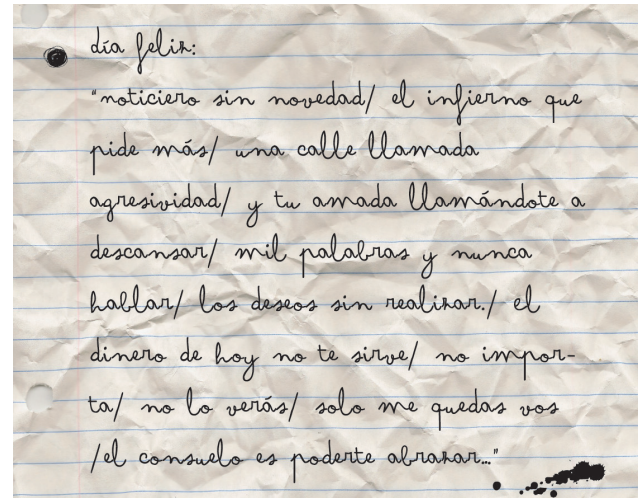 día feliz:
"noticiero sin novedad/ el infierno que
pide más/ una calle llamada
agresividad/ y tu amada llamándote a
descansar/ mil palabras y nunca
hablar/ los deseos sin realizar./ el
dinero de hoy no te sirve/ no impor-
ta/ no lo verás/ solo me quedas vos
/el consuelo es poderte abrazar..."